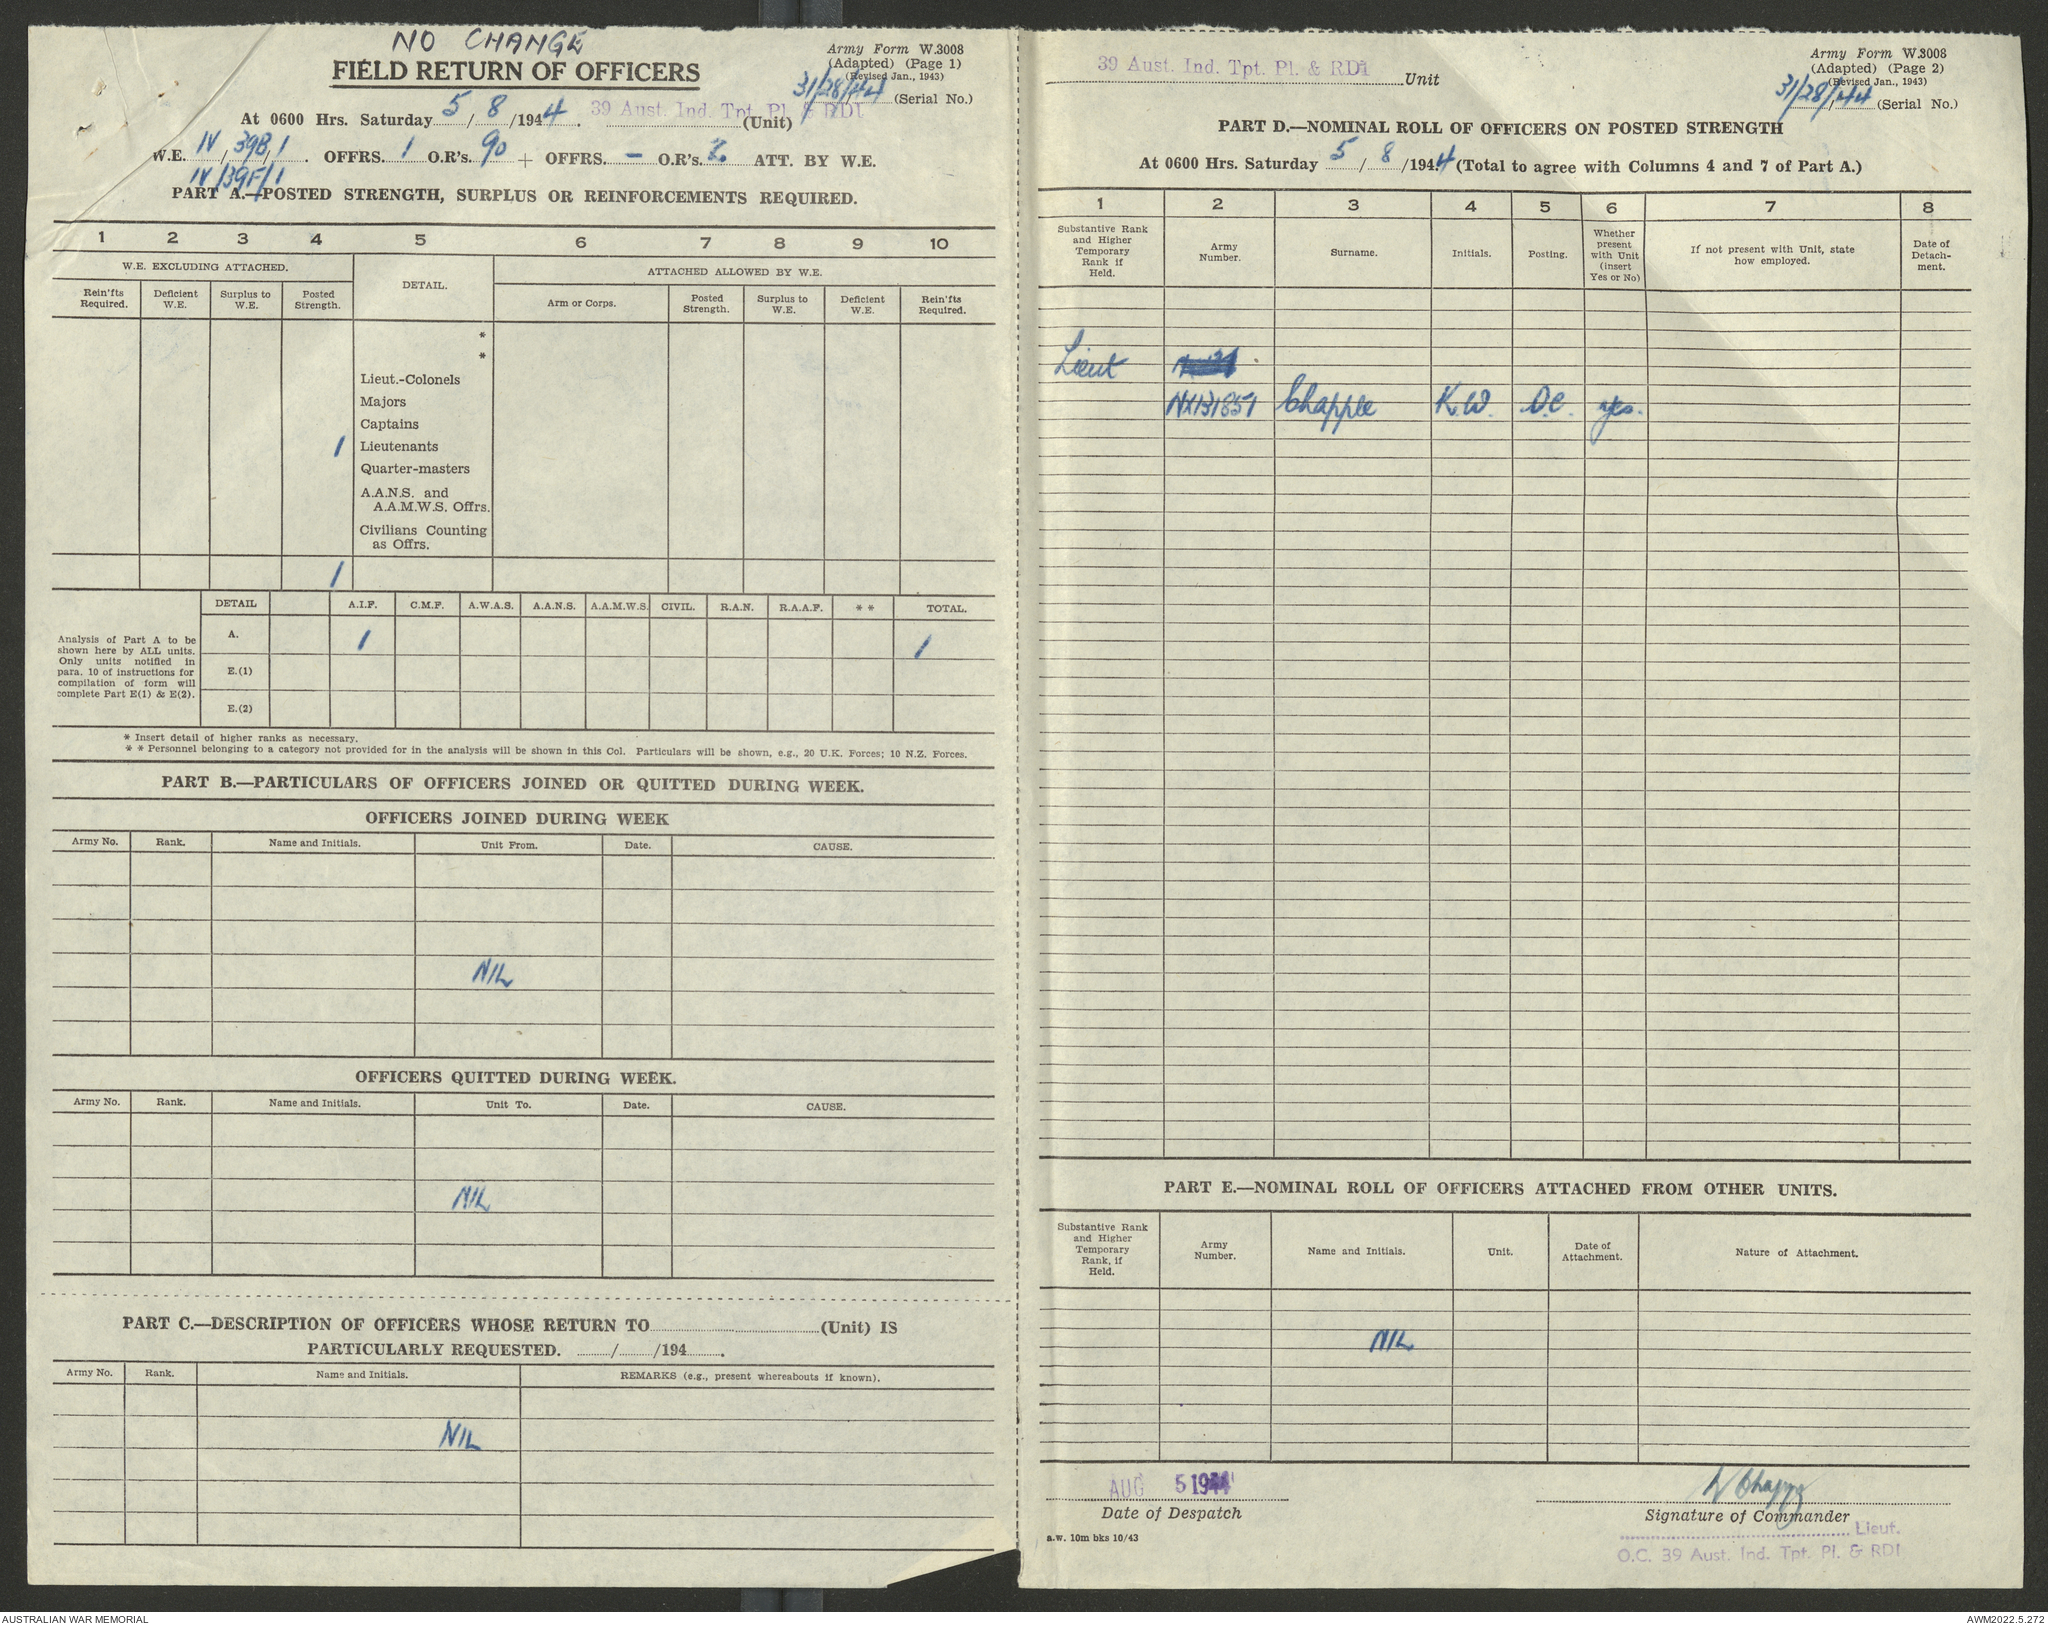 NO CHANGE
FIELD RETURN OF OFFICERS
Army Form W.3008
(Adapted) (Page 1)
(Revised Jan., 1943)
31/28/44 (Serial No.)
At 0600 Hrs. Saturday 5/8/1944. 39 Aust. Ind. Tpt. Pl. & RDI (Unit)
W.E. IV/39B/1. OFFRS. 1 O.R's. 90 + OFFRS. — O.R's. 2. ATT. BY W.E.
IV/39F/1
PART A.—POSTED STRENGTH, SURPLUS OR REINFORCEMENTS REQUIRED.
1 2 3 4 5 6 7 8 9 10
W.E. EXCLUDING ATTACHED. DETAIL. ATTACHED ALLOWED BY W.E.
Rein'fts Required. Deficient W.E. Surplus to W.E. Posted Strength. Arm or Corps. Posted Strength. Surplus to W.E. Deficient W.E. Rein'fts Required.
*
*
Lieut.-Colonels
Majors
Captains
1 Lieutenants
Quarter-masters
A.A.N.S. and
A.A.M.W.S. Offrs.
Civilians Counting
as Offrs.
1
DETAIL A.I.F. C.M.F. A.W.A.S. A.A.N.S. A.A.M.W.S. CIVIL. R.A.N. R.A.A.F. * * TOTAL.
Analysis of Part A to be
shown here by ALL units.
Only units notified in
para. 10 of instructions for
compilation of form will
complete Part E(1) & E(2).
A. 1 1
E.(1)
E.(2)
* Insert detail of higher ranks as necessary.
* * Personnel belonging to a category not provided for in the analysis will be shown in this Col. Particulars will be shown, e.g., 20 U.K. Forces; 10 N.Z. Forces.
PART B.—PARTICULARS OF OFFICERS JOINED OR QUITTED DURING WEEK.
OFFICERS JOINED DURING WEEK
Army No. Rank. Name and Initials. Unit From. Date. CAUSE.
NIL
OFFICERS QUITTED DURING WEEK.
Army No. Rank. Name and Initials. Unit To. Date. CAUSE.
NIL
PART C.—DESCRIPTION OF OFFICERS WHOSE RETURN TO (Unit) IS
PARTICULARLY REQUESTED. / /194 .
Army No. Rank. Name and Initials. REMARKS (e.g., present whereabouts if known).
NIL
39 Aust. Ind. Tpt. Pl. & RDI Unit
Army Form W.3008
(Adapted) (Page 2)
(Revised Jan., 1943)
31/28/44 (Serial No.)
PART D.—NOMINAL ROLL OF OFFICERS ON POSTED STRENGTH
At 0600 Hrs. Saturday 5/8/1944 (Total to agree with Columns 4 and 7 of Part A.)
1 2 3 4 5 6 7 8
Substantive Rank and Higher Temporary Rank if Held. Army Number. Surname. Initials. Posting. Whether present with Unit (insert Yes or No) If not present with Unit, state how employed. Date of Detach-ment.
Lieut
NX131851 Chapple K.W. O.C. yes.
PART E.—NOMINAL ROLL OF OFFICERS ATTACHED FROM OTHER UNITS.
Substantive Rank and Higher Temporary Rank, if Held. Army Number. Name and Initials. Unit. Date of Attachment. Nature of Attachment.
NIL
AUG 5 1944
Date of Despatch
Signature of Commander
a.w. 10m bks 10/43
Lieut.
O.C. 39 Aust. Ind. Tpt. Pl. & RDI
AUSTRALIAN WAR MEMORIAL
AWM2022.5.272